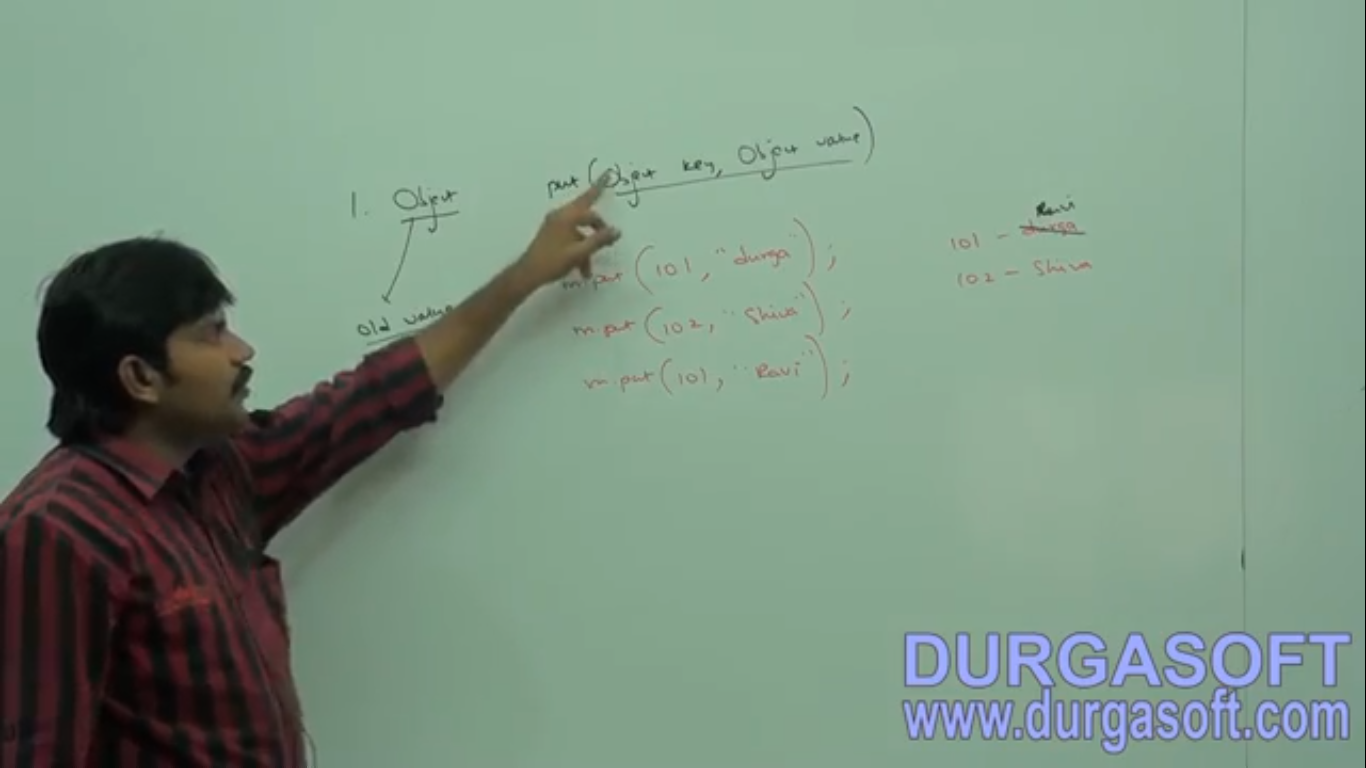 1. Object put(Object key, Object value)
old value
m.put(101, "durga");
m.put(102, "Shiva");
m.put(101, "Ravi");
Ravi
101 - durga
102 - Shiva
DURGASOFT
www.durgasoft.com